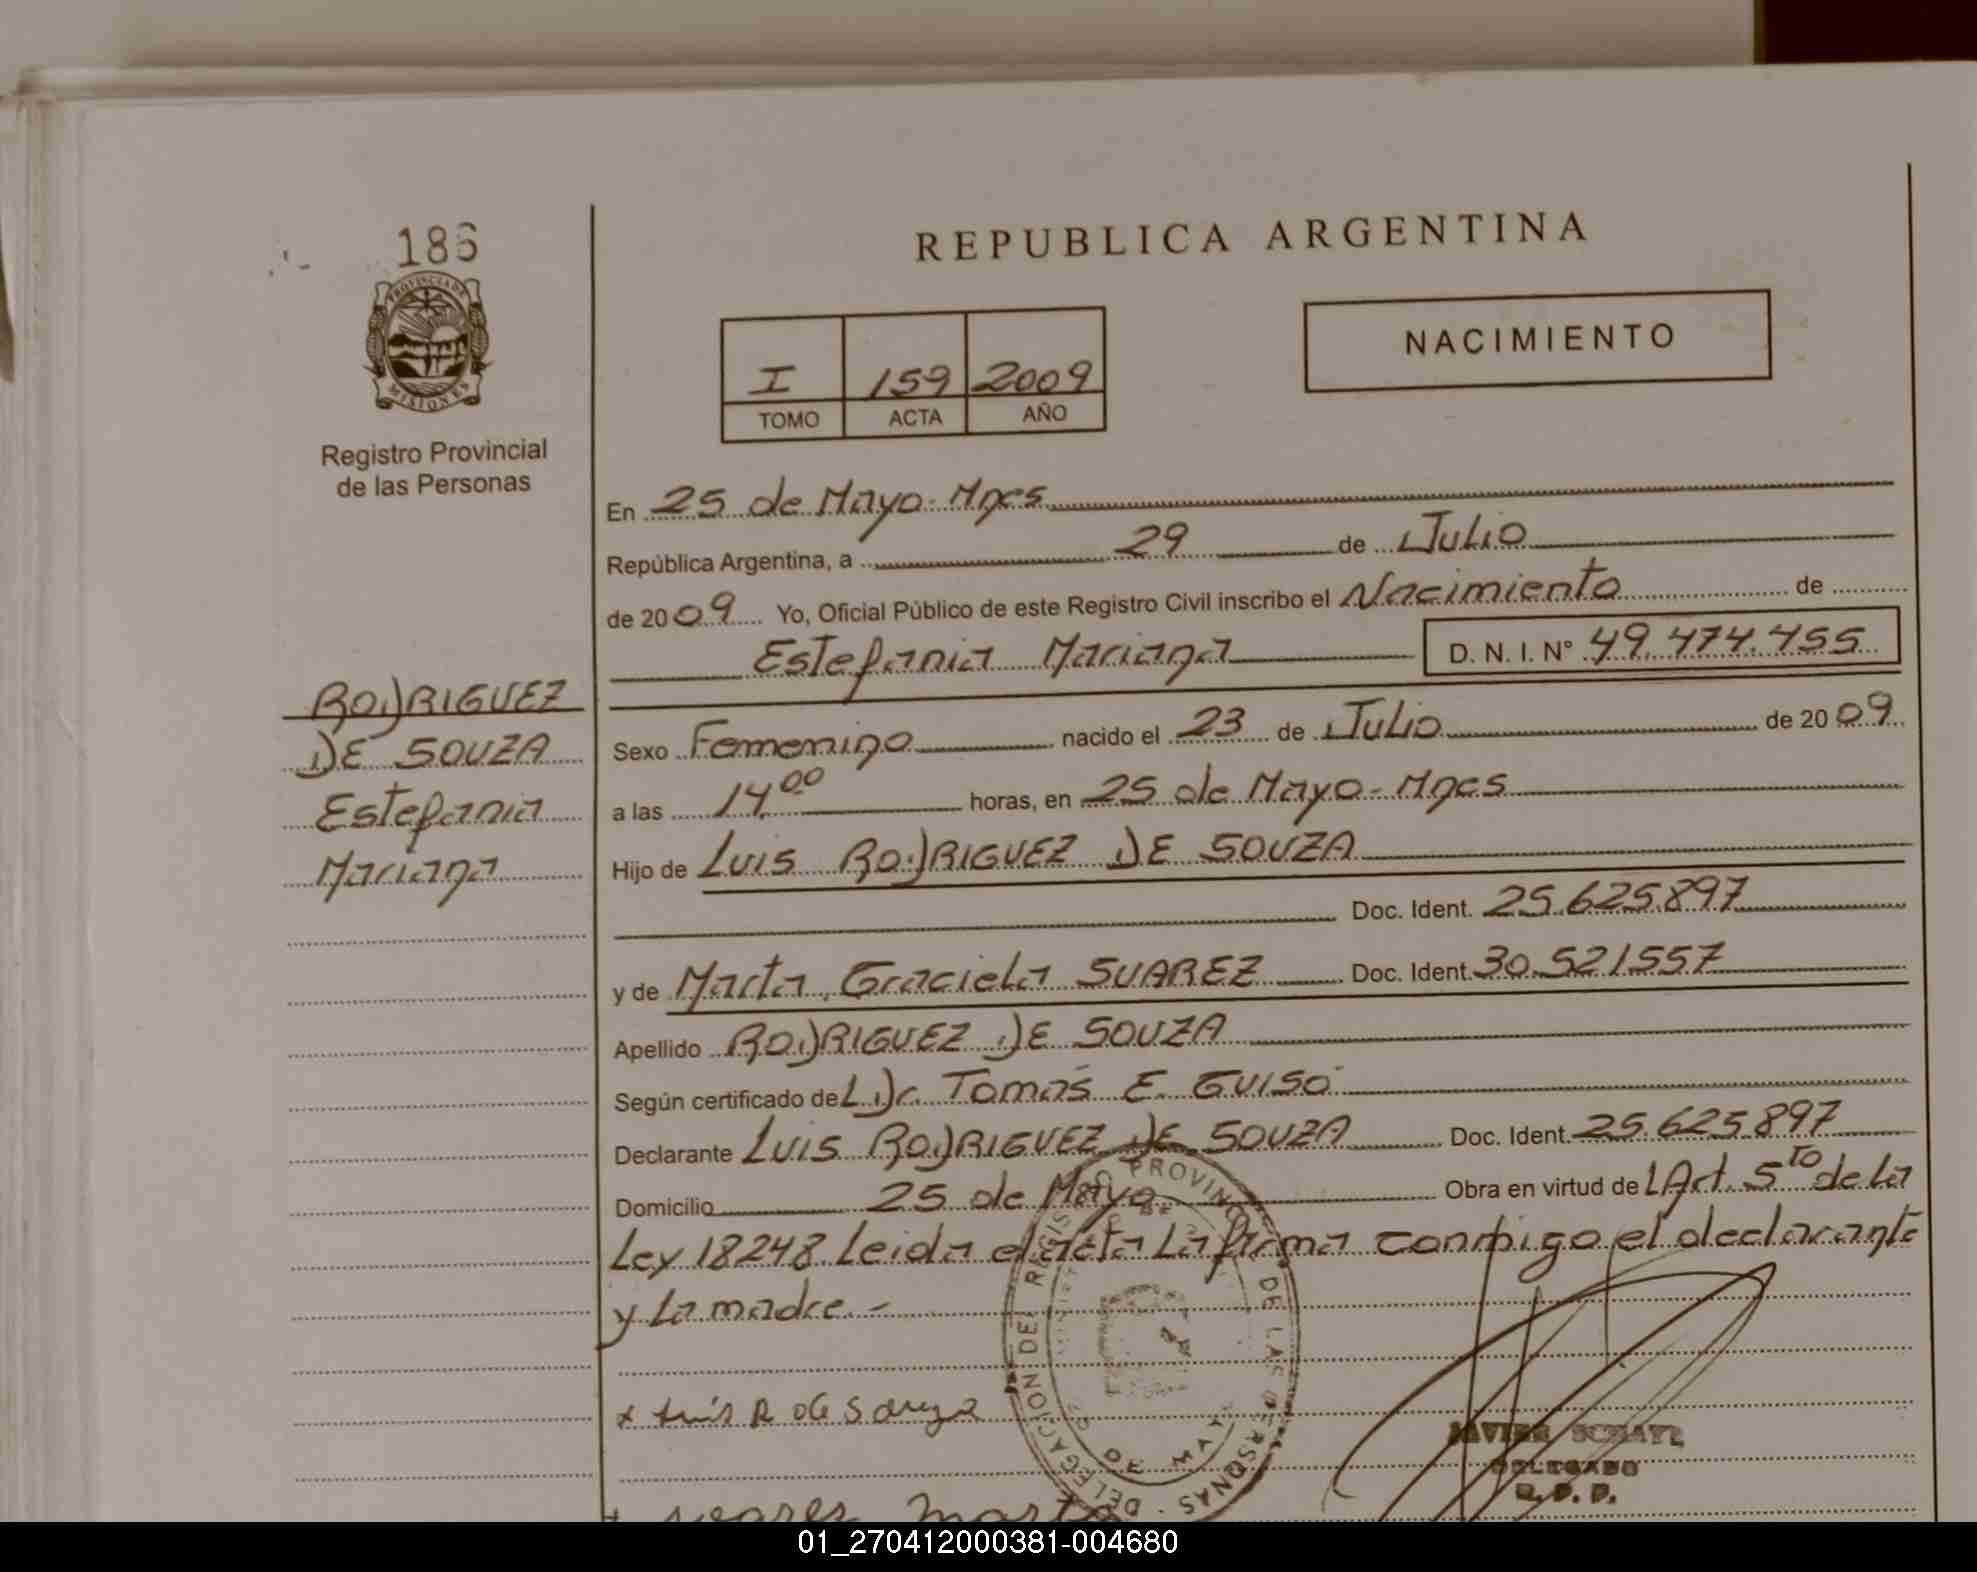 186
PROVINCIA DE
MISIONES
Registro Provincial
de las Personas
RODRIGUEZ
DE SOUZA
Estefania
Mariana
REPUBLICA ARGENTINA
I 159 2009
TOMO ACTA AÑO
NACIMIENTO
En 25 de Mayo-Mnes
República Argentina, a 29 de Julio
de 2009 Yo, Oficial Público de este Registro Civil inscribo el Nacimiento de
Estefania Mariana D. N. I. N° 49.474.455
Sexo Femenino nacido el 23 de Julio de 2009
a las 14,00 horas, en 25 de Mayo-Mnes
Hijo de Luis RODRIGUEZ DE SOUZA
Doc. Ident. 25.625.897
y de Marta Graciela SUAREZ Doc. Ident. 30.521557
Apellido RODRIGUEZ DE SOUZA
Según certificado del Dr. Tomás E. Guiso
Declarante Luis RODRIGUEZ DE SOUZA Doc. Ident. 25.625.897
Domicilio 25 de Mayo Obra en virtud del Art. 5to de la
Ley 18248. Leida el acta la firma conmigo el declarante
y la madre.-
DELEGACION DEL REGISTRO PROVINCIAL DE LAS PERSONAS
DE MAYO
x Luis R de Souza
JAVIER
DELEGADO
Marta
01_270412000381-004680